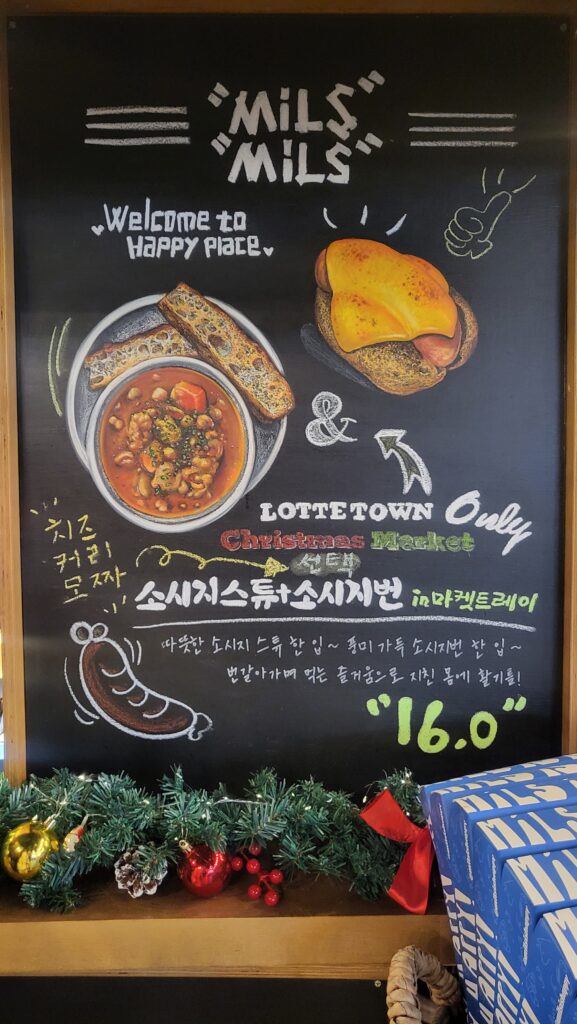 "MiLS"
"MiLS"
Welcome to
HAPPY PLACE
&
LOTTE TOWN Only
Christmas Market
선택
치즈
커리
모짜
소시지스튜+소시지번 in마켓트레이
따뜻한 소시지 스튜 한 입~ 풍미 가득 소시지번 한 입~
번갈아가며 먹는 즐거움으로 지친 몸에 활기를!
"16.0"
MiLS